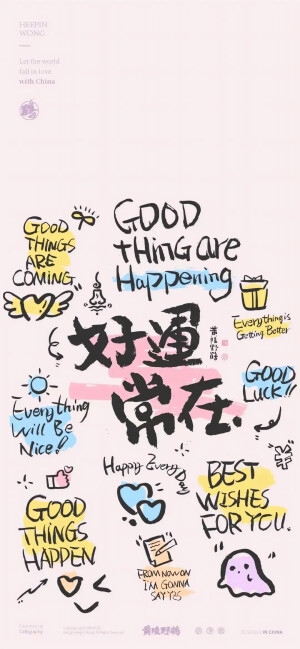 HEEPIN
WONG
Let the world
fall in love
with China
GOOD
THINGS
ARE
COMING
GOOD
tHing are
Happening
Everything is
Getting Better
好運
常在
黃陵野鶴
GOOD
LUCK!!
Everything
Will Be
Nice!
Happy Every Day
BEST
WISHES
FOR YOU.
GOOD
THINGS
HAPPEN
FROM NOW ON
I'M GONNA
SAY YES
黃陵野鶴
IN CHINA